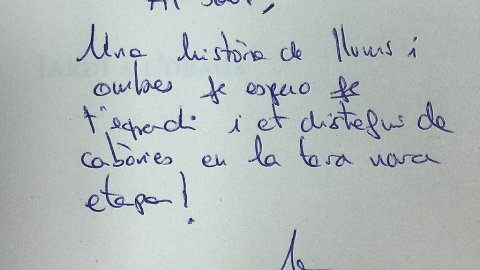 Una història de llums i
ombres que espero que
t'agradi i et distregui de
cabòries en la teva nova
etapa!